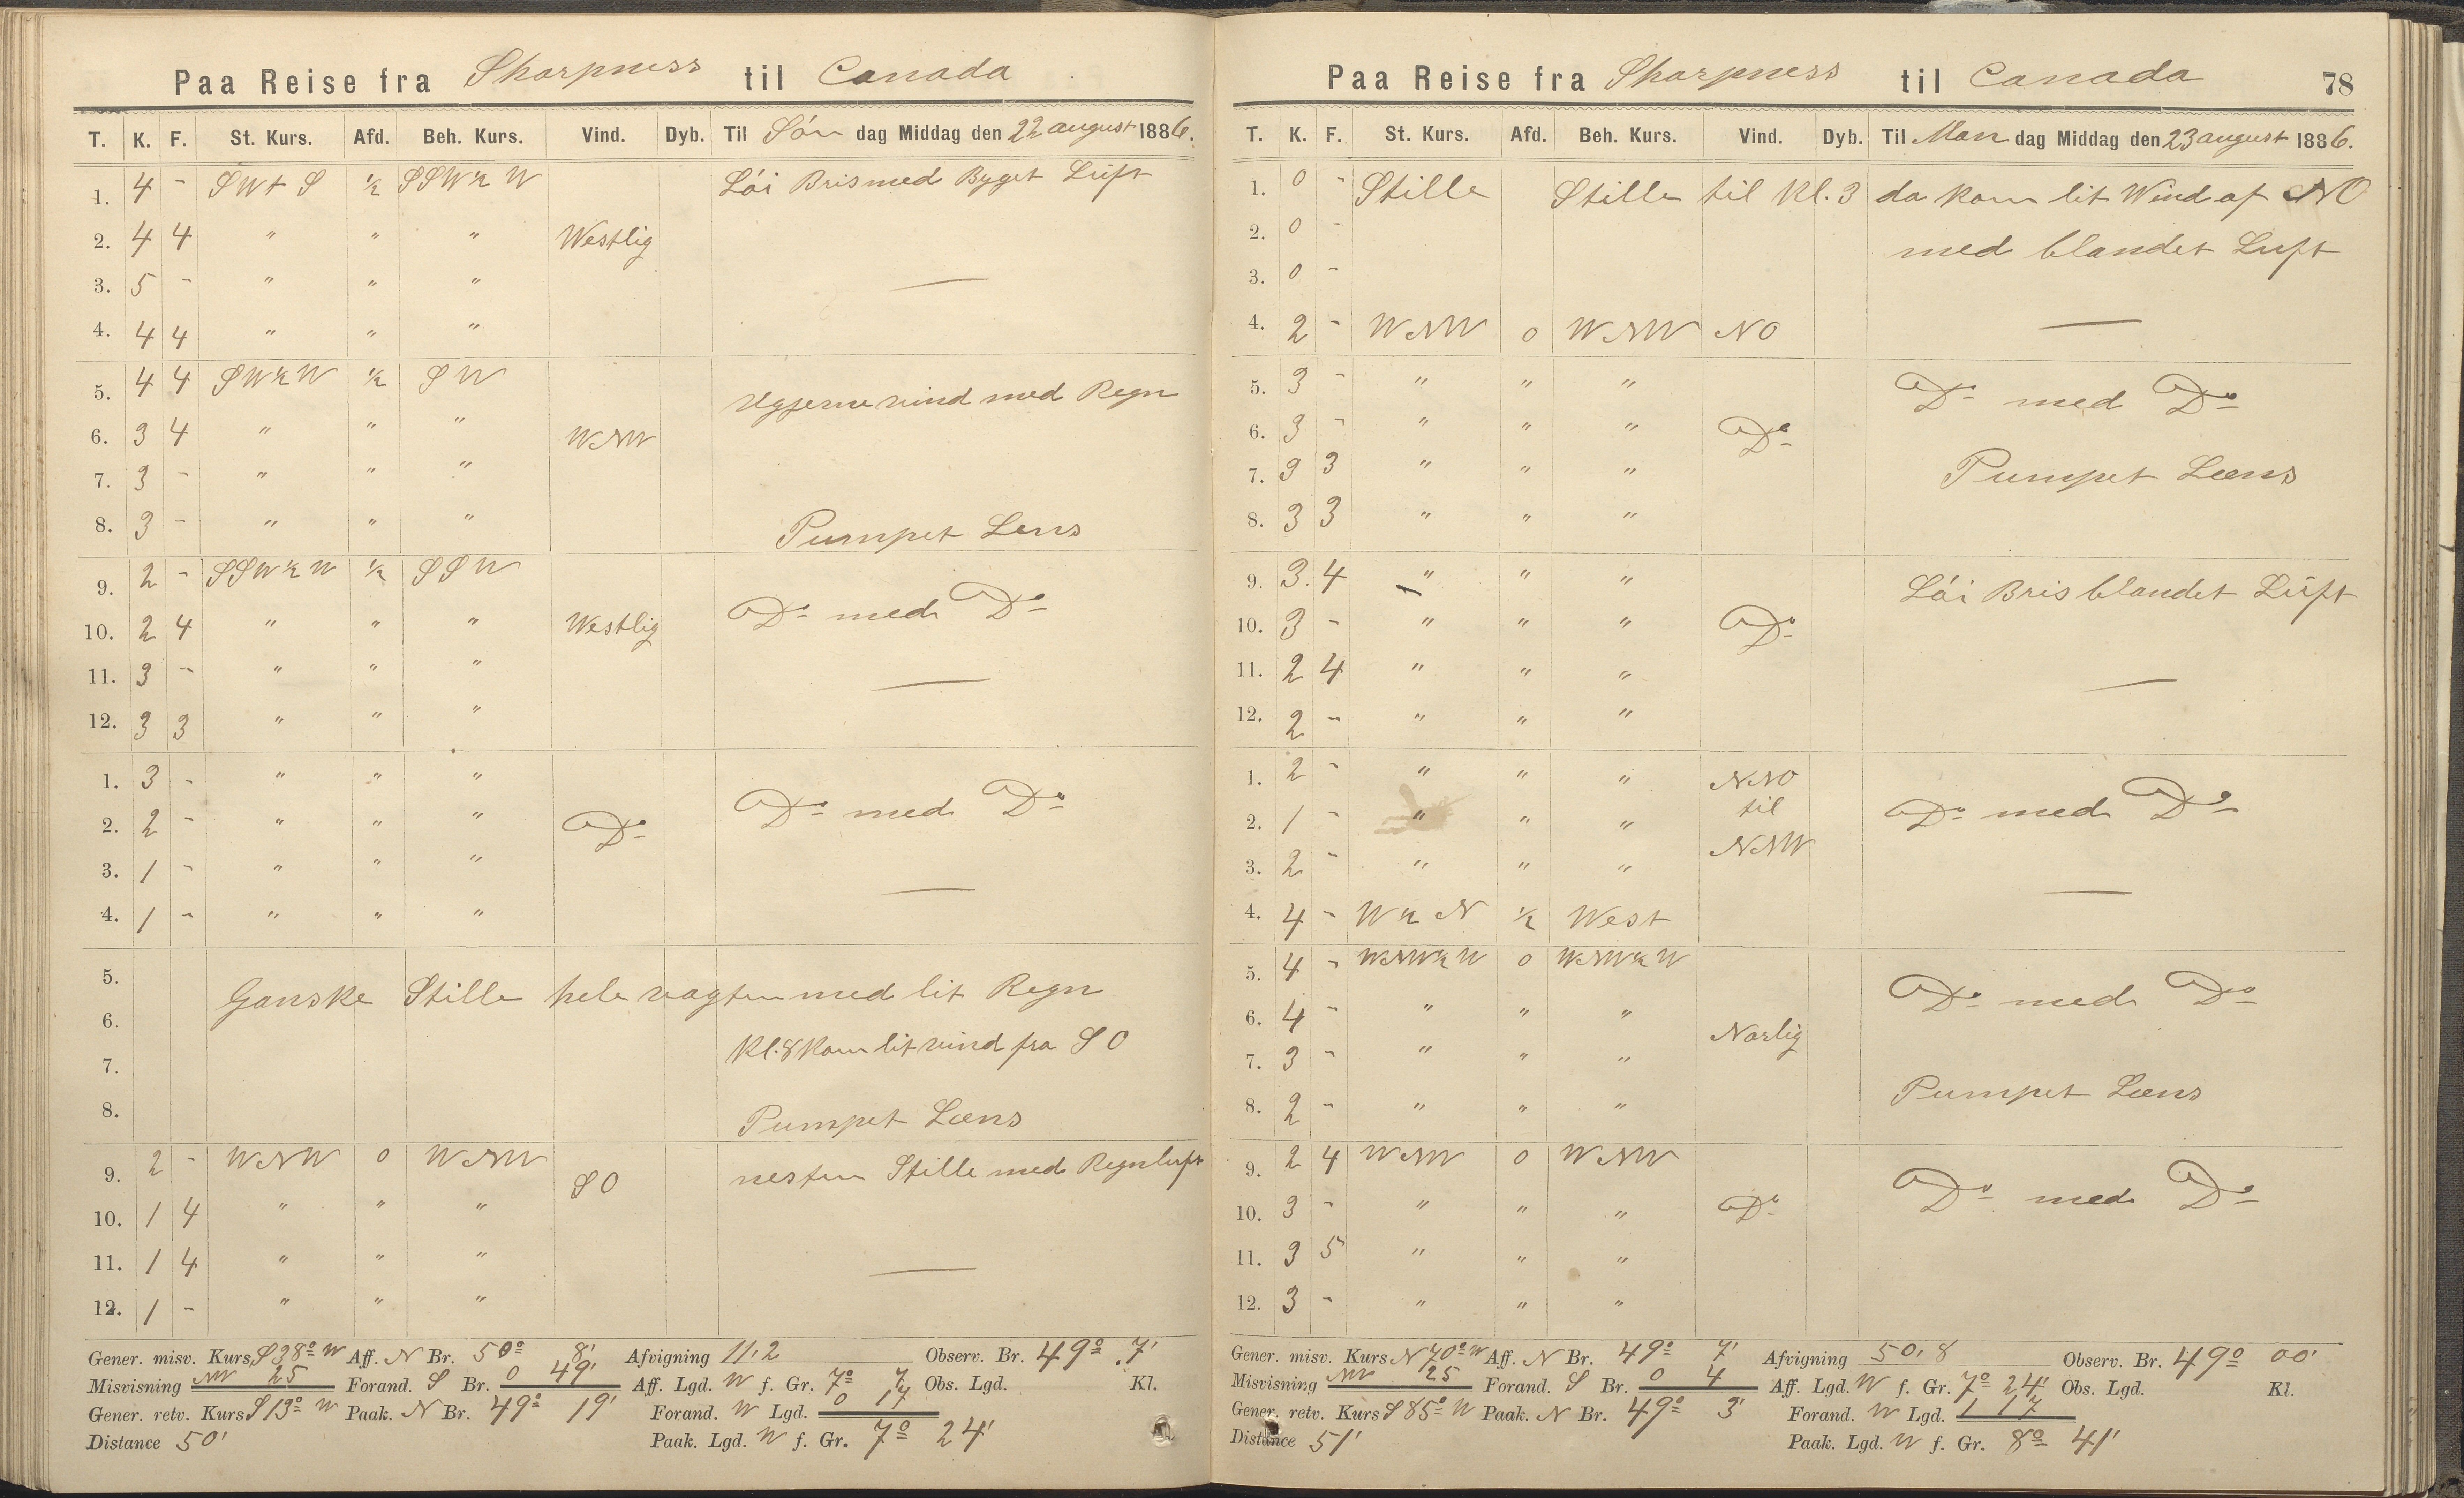 Paa Reise fra Sharpness til Canada
T. K. F. St. Kurs. Afd. Beh. Kurs. Vind. Dyb. Til Søn dag Middag den 22 august 1886.
1. 4 - SWtS ½ SSW½W Löi Bris med Byget Luft
2. 4 4 " " " Westlig
3. 5 - " " " —
4. 4 4 " " "
5. 4 4 SW½W ½ SW
vind med Regn
6. 3 4 " " " WNW
7. 3 - " " "
8. 3 - " " " Pumpet Lens
9. 2 - SSW½W ½ SSW
10. 2 4 " " " Westlig Do med Do
11. 3 - " " " —
12. 3 3 " " "
1. 3 - " " "
2. 2 - " " " Do Do med Do
3. 1 - " " " —
4. 1 - " " "
5.
Ganske Stille hele vagten med lit Regn
6.
Kl. 8 kom lit vind fra SO
7.
8. Pumpet Læns
9. 2 - WNW 0 WNW SO nesten Stille med Regnluft
10. 1 4 " " "
11. 1 4 " " " —
12. 1 - " " "
Gener. misv. Kurs S 38° W Aff. N Br. 50° 8' Afvigning 11,2 Observ. Br. 49° 7'
Misvisning NW 25 Forand. S Br. 0 49' Aff. Lgd. W f. Gr. 7° 7 Obs. Lgd. Kl.
Gener. retv. Kurs S 13° W Paak. N Br. 49° 19' Forand. W Lgd. 0 17
Distance 50' Paak. Lgd. W f. Gr. 7° 24'
Paa Reise fra Sharpness til Canada 78
T. K. F. St. Kurs. Afd. Beh. Kurs. Vind. Dyb. Til Man dag Middag den 23 august 1886.
1. 0 - Stille Stille til Kl. 3 da kom lit Wind af NO
2. 0 - med blandet Luft
3. 0 -
4. 2 - WNW 0 WNW NO —
5. 3 - " " " Do med Do
6. 3 - " " " Do
7. 3 3 " " " Pumpet Læns
8. 3 3 " " "
9. 3. 4 " " " Löi Bris blandet Luft
10. 3 - " " " Do
11. 2 4 " " " —
12. 2 - " " "
1. 2 - " " " NNO
2. 1 - " " " til Do med Do
3. 2 - " " " NNW
4. 4 - W½N ½ West —
5. 4 - WNW½W 0 WNW½W Do med Do
6. 4 - " " "
7. 3 - " " " Norlig
8. 2 - " " " Pumpet Læns
9. 2 4 WNW 0 WNW
10. 3 - " " " Do Do med Do
11. 3 5 " " "
12. 3 - " " "
Gener. misv. Kurs N 70° W Aff. N Br. 49° 7' Afvigning 50,8 Observ. Br. 49° 00'
Misvisning NW 25 Forand. S Br. 0 4 Aff. Lgd. W f. Gr. 7° 24' Obs. Lgd. Kl.
Gener. retv. Kurs S 85° W Paak. N Br. 49° 3' Forand. W Lgd. 1 17
Distance 51' Paak. Lgd. W f. Gr. 8° 41'